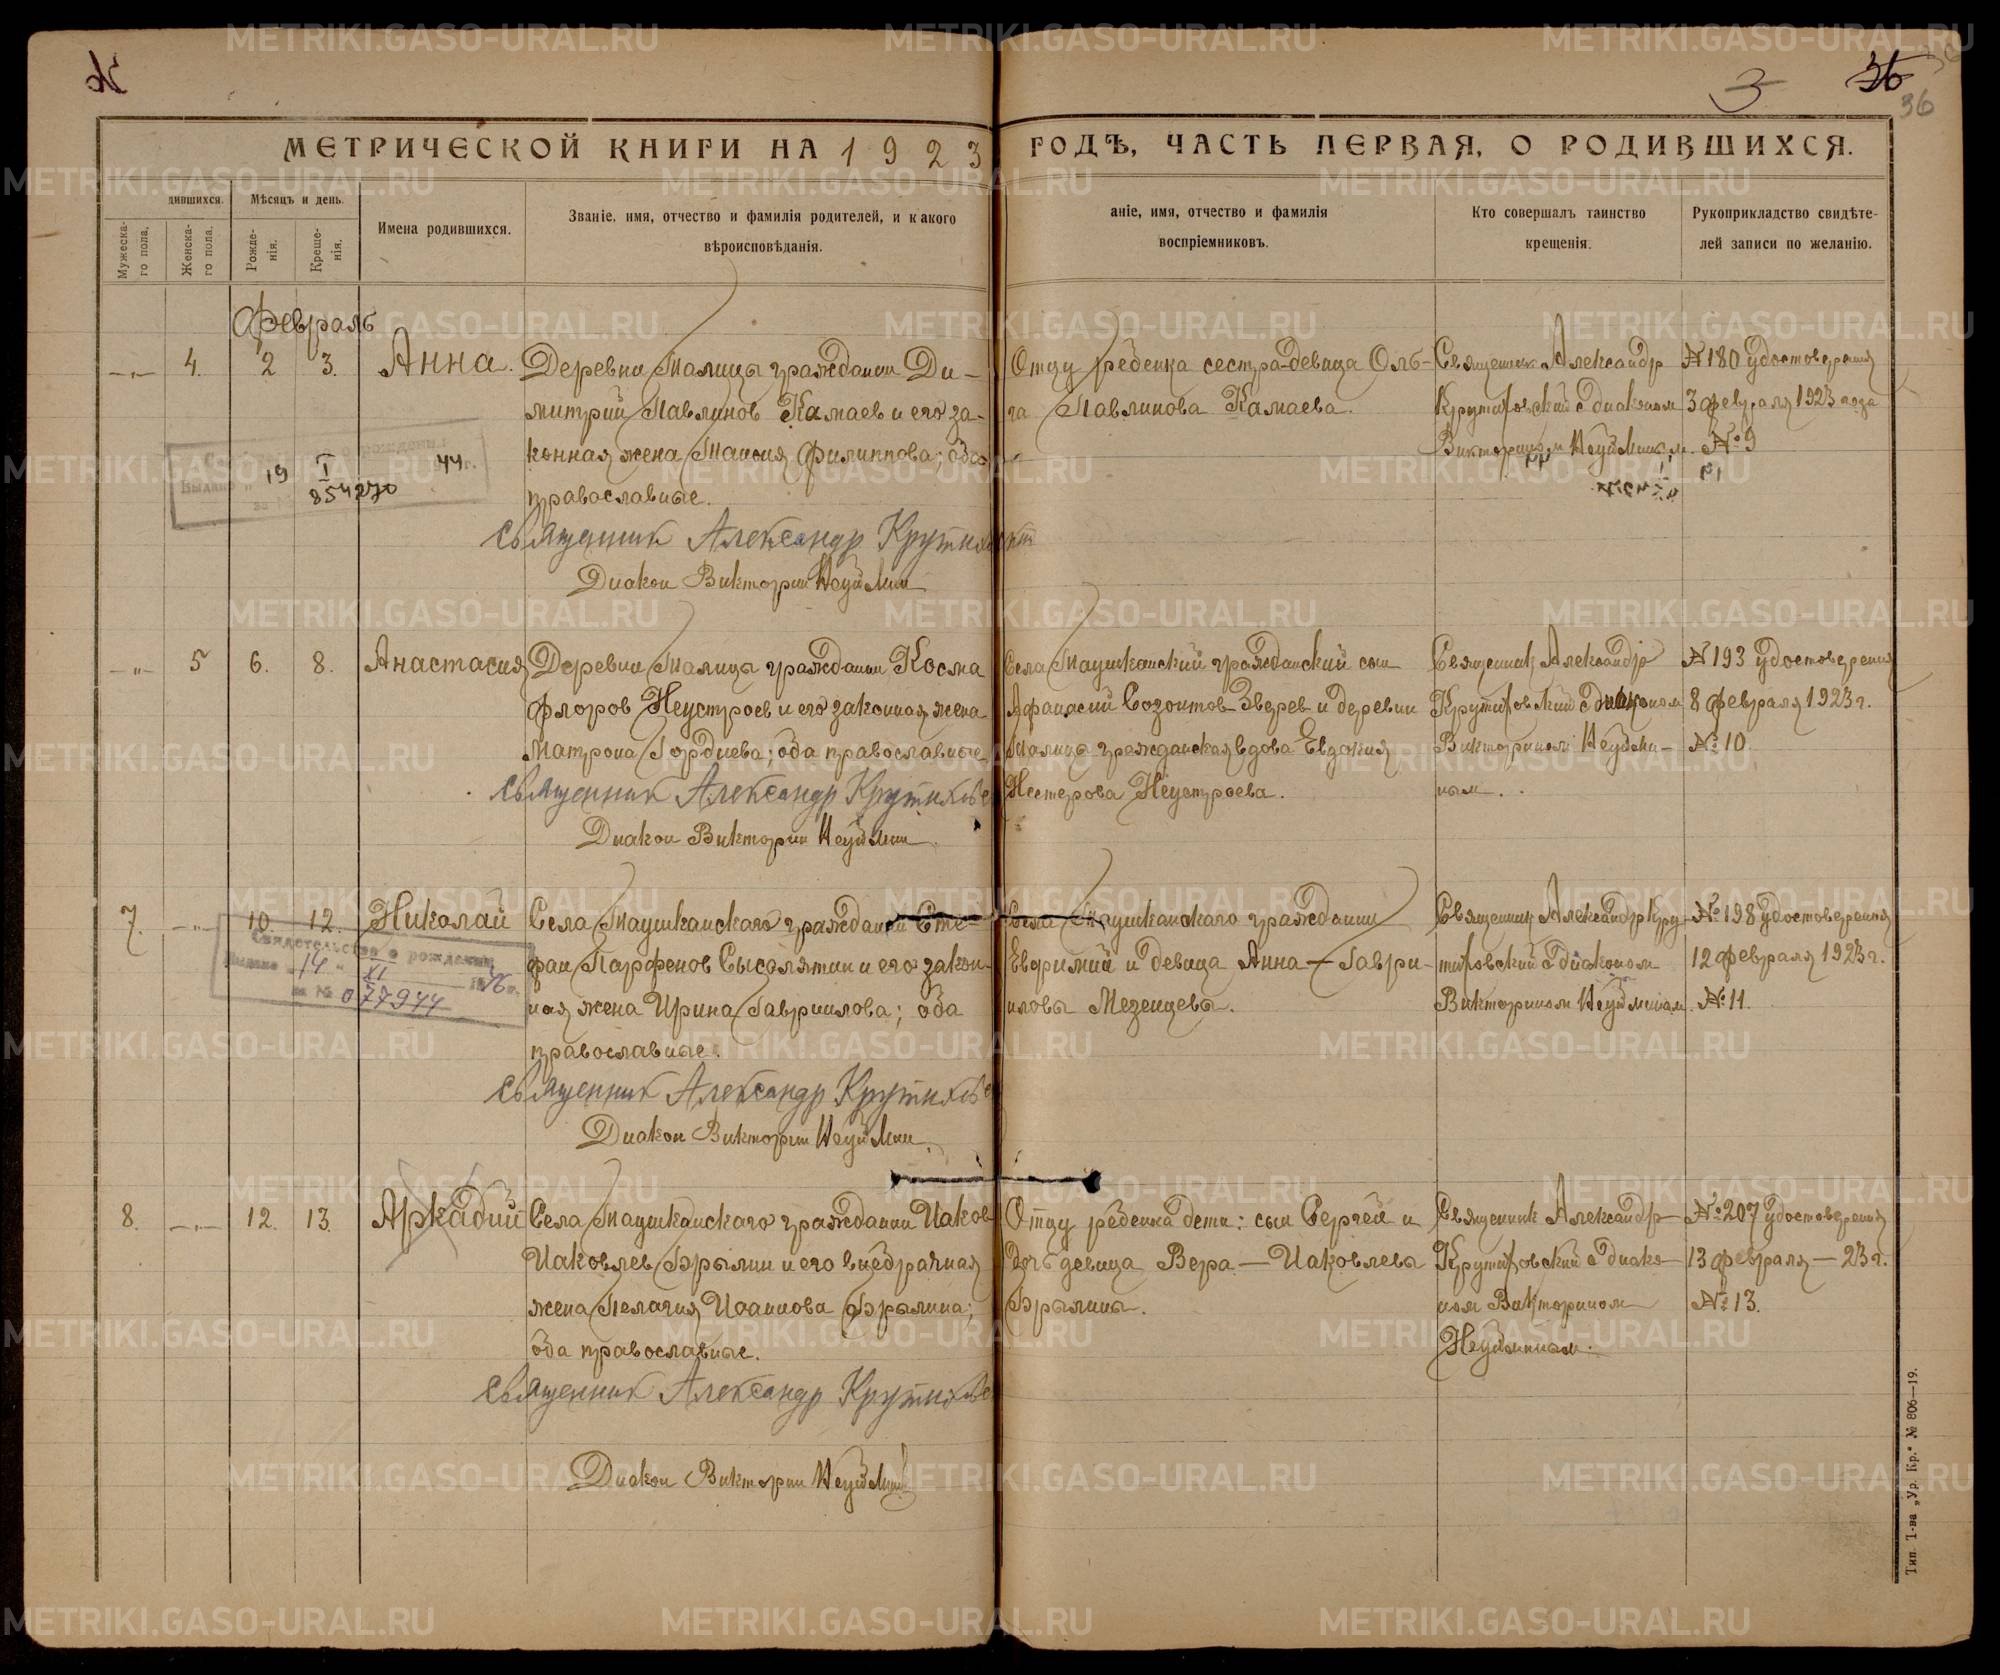 МЕТРИЧЕСКОЙ КНИГИ НА 1923 ГОДЪ, ЧАСТЬ ПЕРВАЯ, О РОДИВШИХСЯ.
3
36
36
дившихся.
Мѣсяцъ и день.
Имена родившихся.
Званіе, имя, отчество и фамилія родителей, и какого
вѣроисповѣданія.
аніе, имя, отчество и фамилія
воспріемниковъ.
Кто совершалъ таинство
крещенія.
Рукоприкладство свидѣте-
лей записи по желанію.
Мужеска-
го пола.
Женска-
го пола.
Рожде-
нія.
Креще-
нія.
Февраль
4.
2
3.
Анна.
Деревни Талицы гражданин Ди-
митрий Павлинов Камаев и его за-
конная жена Таисия Филиппова; оба
православные.
Священник Александр Крутиховский
Диакон Викторин Неуймин
Отцу ребенка сестра-девица Оль-
га Павлинова Камаева.
Священник Александр
Крутиховский с диаконом
Викторином Неуйминым.
№ 180 удостоверения
3 февраля 1923 года
№ 9
19 I 44 г.
854270
5
6.
8.
Анастасия
Деревни Талицы гражданин Косма
Флоров Неустроев и его законная жена
Матрона Гордиева; оба православные
Священник Александр Крутиховс
Диакон Викторин Неуймин.
Села Таушканский гражданский сын
Афанасий Созонтов Зверев и деревни
Талицы гражданская вдова Евдокия
Нестерова Неустроева.
Священник Александр
Крутиховский с диаконом
Викторином Неуйми-
ным.
№ 193 удостоверения
8 февраля 1923 г.
№ 10.
7.
10.
12.
Николай
Села Таушканского гражданин Сте-
фан Парфенов Сысолятин и его закон-
ная жена Ирина Гавриилова; оба
православные.
Священник Александр Крутиховс
Диакон Викторин Неуймин.
Свидетельство о рождении
Выдано „14" XI 1946 г.
за № 077944
Села Таушканского гражданин
Евфимий и девица Анна — Гаври-
иловы Мезенцевы.
Священник Александр Кру-
тиховский с диаконом
Викторином Неуйминым.
№ 198 удостоверения
12 февраля 1923 г.
№ 11.
8.
12.
13.
Аркадий
Села Таушканского гражданин Иаков
Иаковлев Брылин и его внебрачная
жена Пелагия Иоаннова Брылина;
оба православные.
Священник Александр Крутиховс
Диакон Викторин Неуймин
Отцу ребенка дети: сын Сергей и
дочь девица Вера — Иаковлевы
Брылины.
Священник Александр
Крутиховский с диако-
ном Викторином
Неуйминым.
№ 207 удостоверения
13 февраля — 23 г.
№ 13.
Тип. Т-ва „Ур. Кр." № 806—19.
METRIKI.GASO-URAL.RU